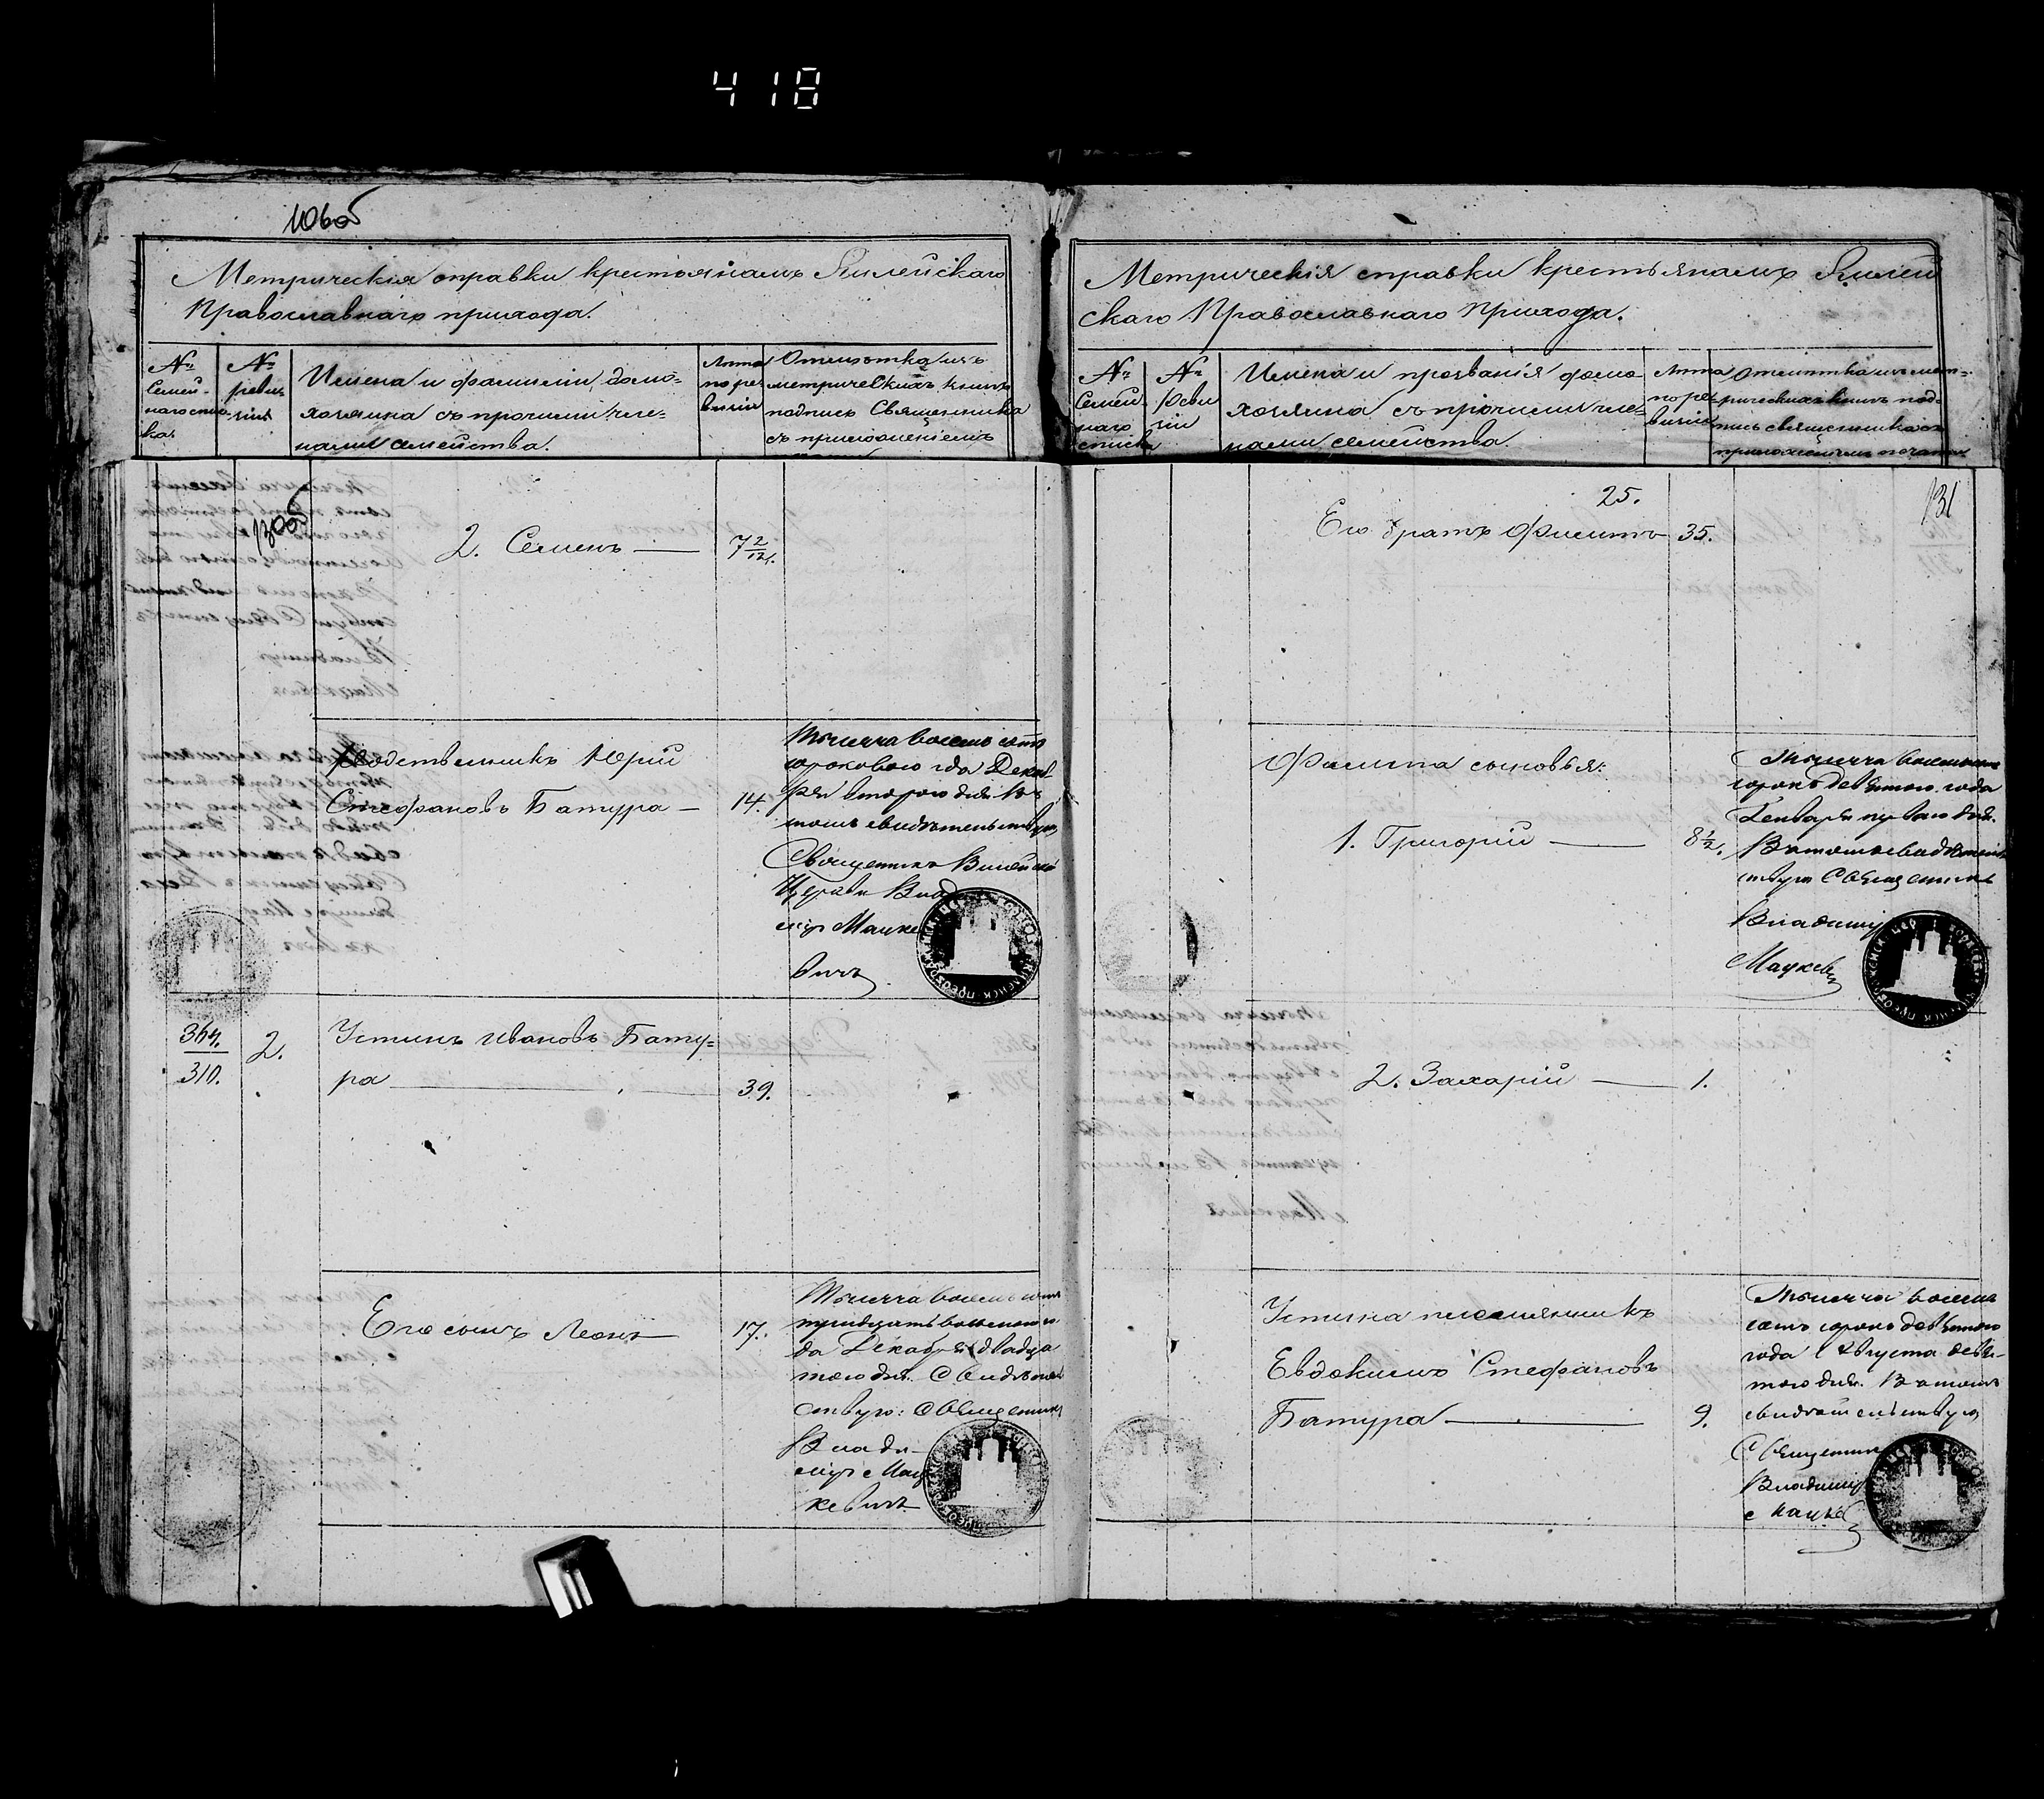 418
106об
Метрическія справки крестьянамъ
Православнаго прихода.
№
Семей-
наго спис-
ка.
№
реви-
зіи
Имена и фамиліи домо-
хозяина съ прочими чле-
нами семейства.
Лѣта
по ре-
визіи
Отмѣтка изъ
метрическихъ книгъ
подпись Священника
съ приложеніемъ
130об
2. Семенъ — 7 2/12.
Родственникъ Юрій
Стефановъ Батура — 14.
Тысяча восемь сотъ
сороковаго года Декаб
ря втораго дня. Въ
томъ свидѣтельствую
Священникъ
Церкви Влад
миръ Мацке
вичъ
364.
310.
2.
Устинъ Ивановъ Бату=
ра — 39.
Его сынъ Леонъ 17.
Тысяча восемь сотъ
тридцать восьмого го
да Декабря двадца
таго дня. Свидѣтель
ствую: Священникъ
Влади-
миръ Мац
кевичъ
Метрическія справки крестьянамъ
скаго Православнаго Прихода.
№
Семей
наго
списка
№
Реви
зіи
Имена и прозванія домо
хозяина съ прочими чле-
нами семейства.
Лѣта
по ре-
визіи
Отмѣтка изъ мет-
рическихъ книгъ под-
пись священника съ
приложеніемъ печати
131
25.
Его братъ Филипъ 35.
Филипа сыновья:
1. Григорій — 8 1/2.
Тысяча восемьсотъ
сорокъ девятаго года
Генваря перваго дня.
Въ томъ свидѣтель
ствую Священникъ
Владимир
Мацкев
2. Захарій — 1.
Устина племянникъ
Евдокимъ Стефановъ
Батура — 9.
Тысяча восемь
сотъ сорокъ девятаго
года Августа девя-
таго дня. Въ томъ
свидѣтельствую
Священник
Владимир
Мацке